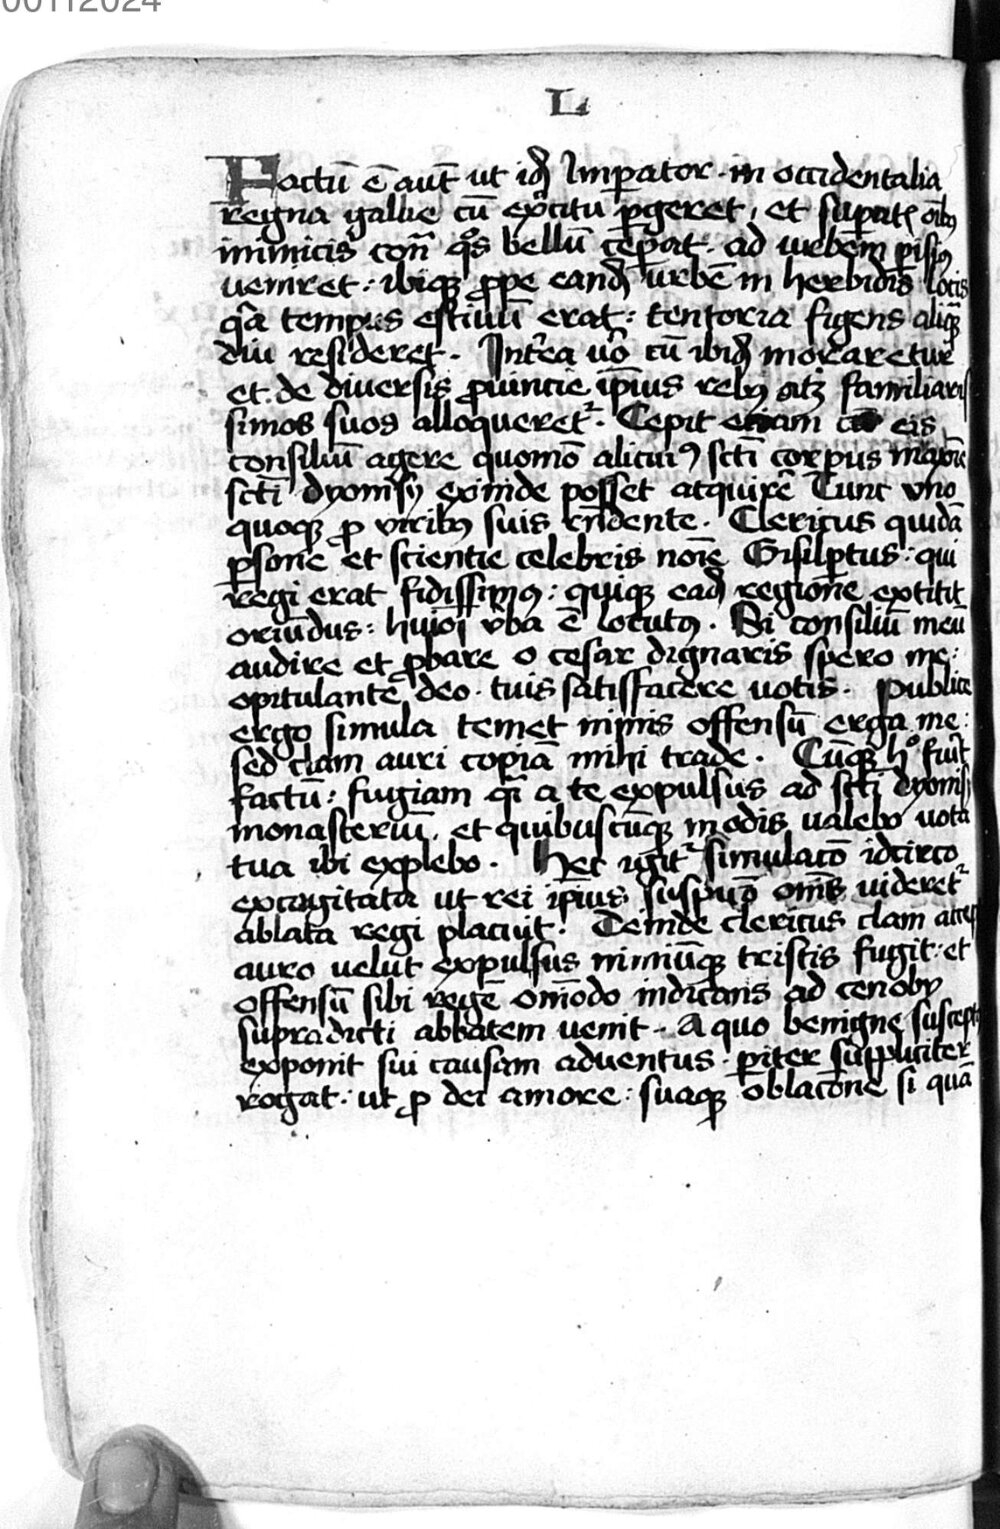 00112024
L
Factū ē aut̄ ut idē Imꝑator · in occidentalia
regna gallie cū exc̄itu ꝑgeret, et suꝑatꝭ oīb⁹
inimicis cont̄ qͦs bellū ceꝑat · ad urbem
ueniret : ibiqꝫ ꝓpe eandē urbē in herbidis locis
qͥa tempus estiuū erat : tentoria figens aliqꝫ
diu resideret · Int̄ea uͦo cū ibidē moraretur
et de diuersis ꝓuincie ip̄ius reb⁹ atqꝫ familiaris
simos suos alloqueret᷑ · Cepit etiam cū eis
consiliū agere quomō alicui⁹ sc̄ti corpus maxīe
sc̄ti dyonisij exinde posset atquirē Tunc vno
quoqꝫ ꝓ virib⁹ suis rn̄dente · Clericus quidā
ꝑsone et scientie celebris noīe Gisilꝑtus : qui
regi erat fidissim⁹ : quiqꝫ eadē regione extitit
oriūdus : huiōi v̄ba ē locut⁹ · Si consiliū meū
audire et ꝓbare o cesar dignaris spero me :
opitulante deo · tuis satisfacere uotis · Publice
ergo simula temet nimis offensū erga me :
sed clam auri copiā mihi trade · Cūqꝫ hͦ fuīt
factū : fugiam qͣi a te expulsus ad sc̄ti dyonisij
monasteriū, et quibuscūqꝫ modis ualebo uota
tua ibi explebo · Hec igit᷑ simulacō idcirco
excogitata ut rei ip̄ius suspicō om̄is uideret᷑
ablata regi placuit · Deinde clericus clam accep
auro velut expulsus nimiūqꝫ tristis fugit : et
offensū sibi regē om̄iodo indicans ad cenoby
supradicti abbatem uenit · A quo benigne suscept⁹
exponit sui causam aduentus · ꝑiter supplicit̄
rogat · ut ꝓ dei amore : suaqꝫ oblacōne si quā